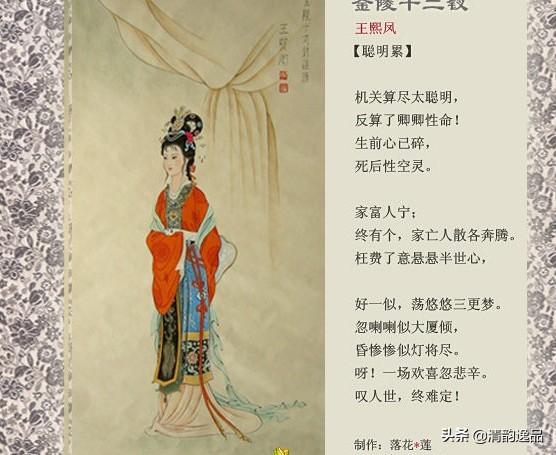 金陵十二钗
王熙凤
【聪明累】
机关算尽太聪明，
反算了卿卿性命！
生前心已碎，
死后性空灵。
家富人宁；
终有个，家亡人散各奔腾。
枉费了意悬悬半世心，
好一似，荡悠悠三更梦。
忽喇喇似大厦倾，
昏惨惨似灯将尽。
呀！一场欢喜忽悲辛。
叹人世，终难定！
制作：落花*莲
头条 @清韵逸品